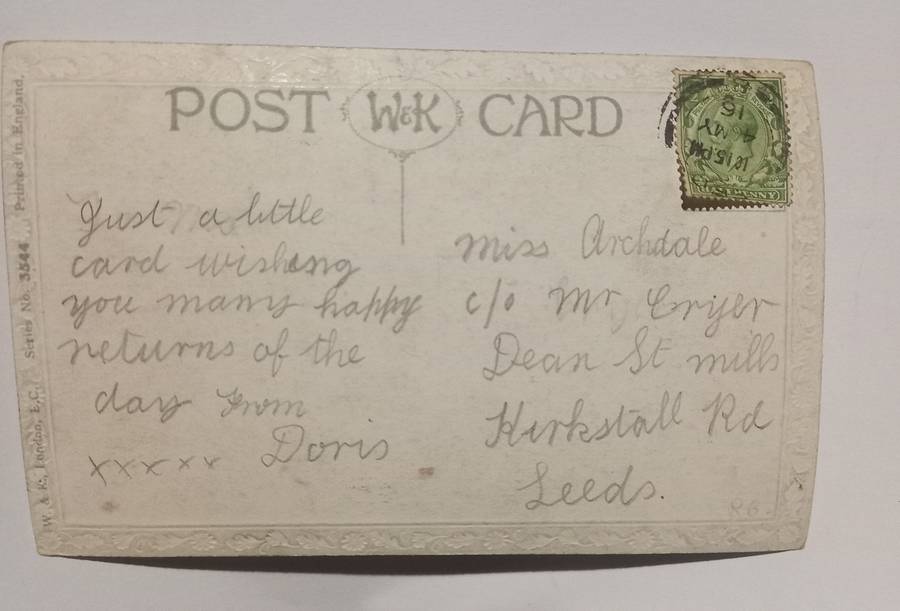 POST W&K CARD
Just a little
card wishing
you many happy
returns of the
day from
xxxxx Doris
Miss Archdale
c/o Mr Cryer
Dean St mills
Kirkstall Rd
Leeds.
12 15 PM
4 MY
16
W. & K., London, E.C. Series No. 3544 Printed in England.